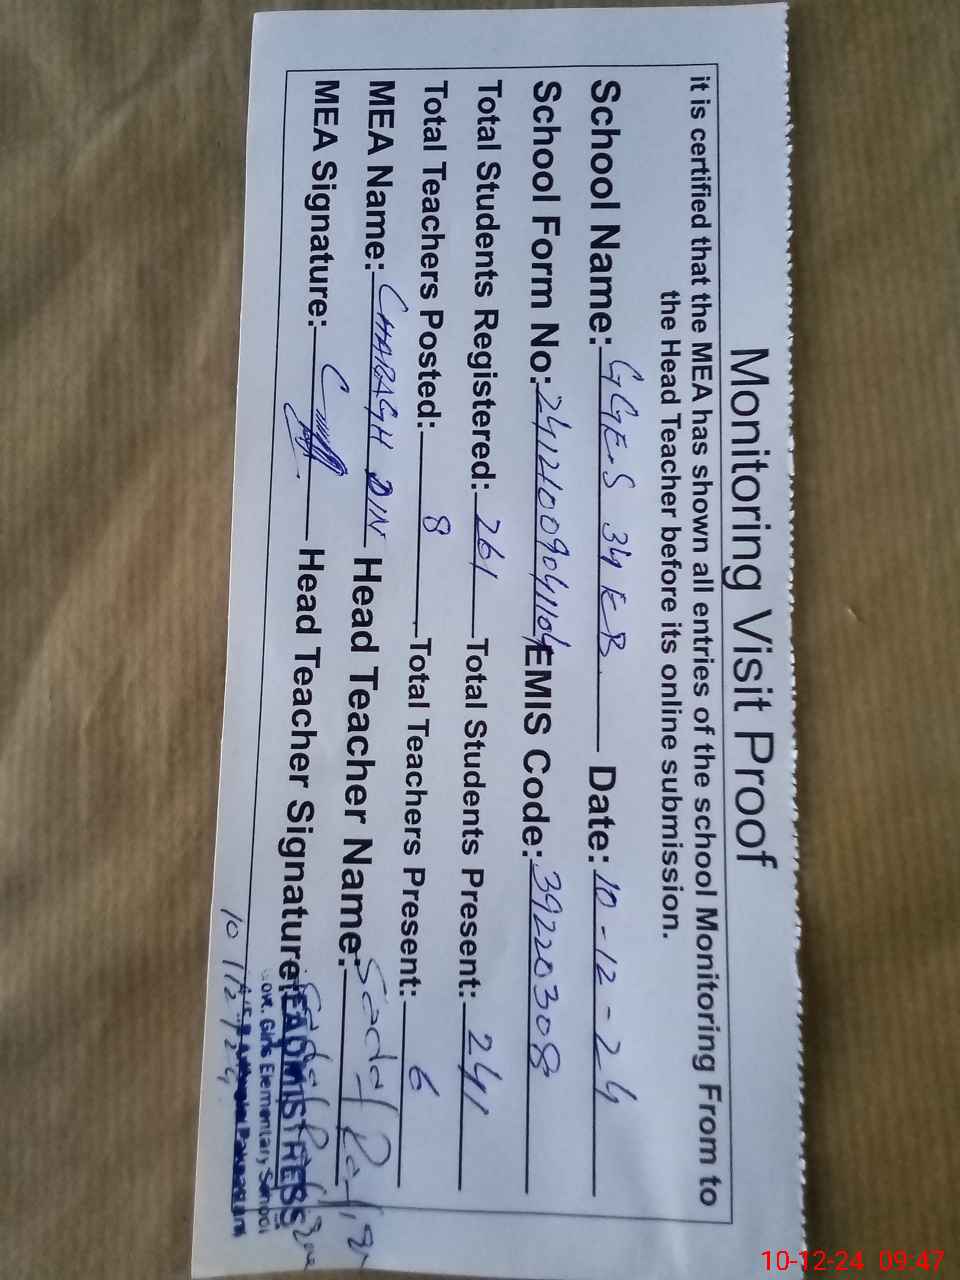 Monitoring Visit Proof
it is certified that the MEA has shown all entries of the school Monitoring From to
the Head Teacher before its online submission.
School Name: GGES 34 KB Date: 10-12-24
School Form No: 24121009041104 EMIS Code: 39220308
Total Students Registered: 261 Total Students Present: 241
Total Teachers Posted: 8 Total Teachers Present: 6
MEA Name: CHARAGH DIN Head Teacher Name:
MEA Signature: Head Teacher Signature:
HEADMISTRESS
Govt. Girls Elementary School
10/12/24
10-12-24 09:47